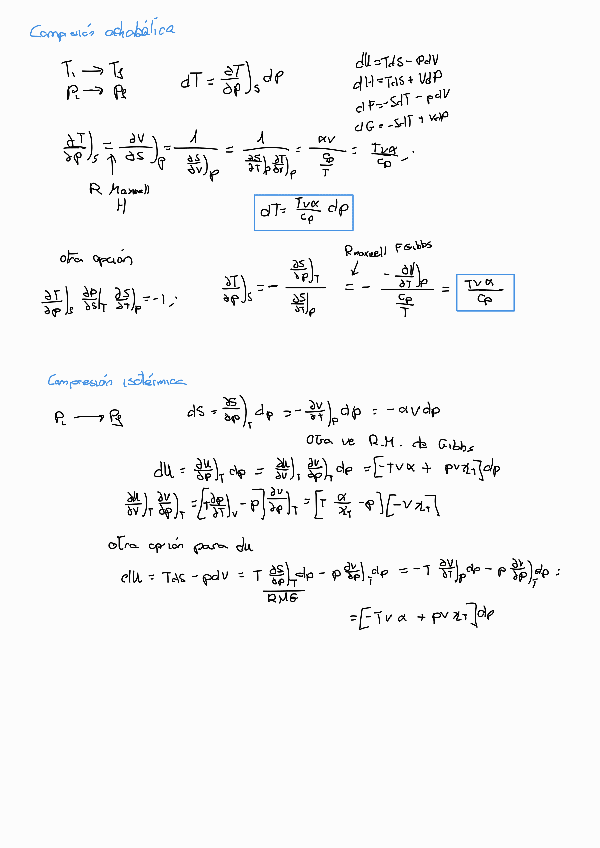 Compresión adiabática
Ti → Tf
Pi → Pf
dT = ∂T/∂p)s dp
dU = Tds - pdV
dH = Tds + Vdp
dF = -SdT - pdV
dG = -SdT + Vdp
∂T/∂p)s = ∂V/∂S)p = 1/(∂S/∂V)p) = 1/(∂S/∂T)p ∂T/∂V)p) = αV/(Cp/T) = TVα/Cp
R Maxwell
H
dT = TVα/Cp dp
otra opción
∂T/∂p)s ∂p/∂S)T ∂S/∂T)p = -1;
∂T/∂p)s = - (∂S/∂p)T)/(∂S/∂T)p) = - (-∂V/∂T)p)/(Cp/T) = TVα/Cp
R maxwell F Gibbs
Compresión isotérmica
Pi → Pf
dS = ∂S/∂p)T dp = -∂V/∂T)p dp = -αVdp
Otra ve R.M. de Gibbs
dU = ∂U/∂p)T dp = ∂U/∂V)T ∂V/∂p)T dp = [-TVα + pVχT]dp
∂U/∂V)T ∂V/∂p)T = [T∂p/∂T)V - p]∂V/∂p)T = [T α/χT - p][-VχT]
otra opción para dU
dU = Tds - pdV = T ∂S/∂p)T dp - p ∂V/∂p)T dp = -T ∂V/∂T)p dp - p ∂V/∂p)T dp =
RMG
= [-TVα + pVχT]dp